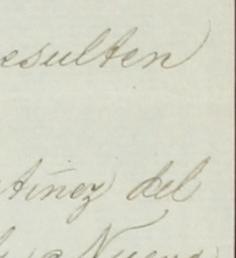 esulten
tínez del
Nueva